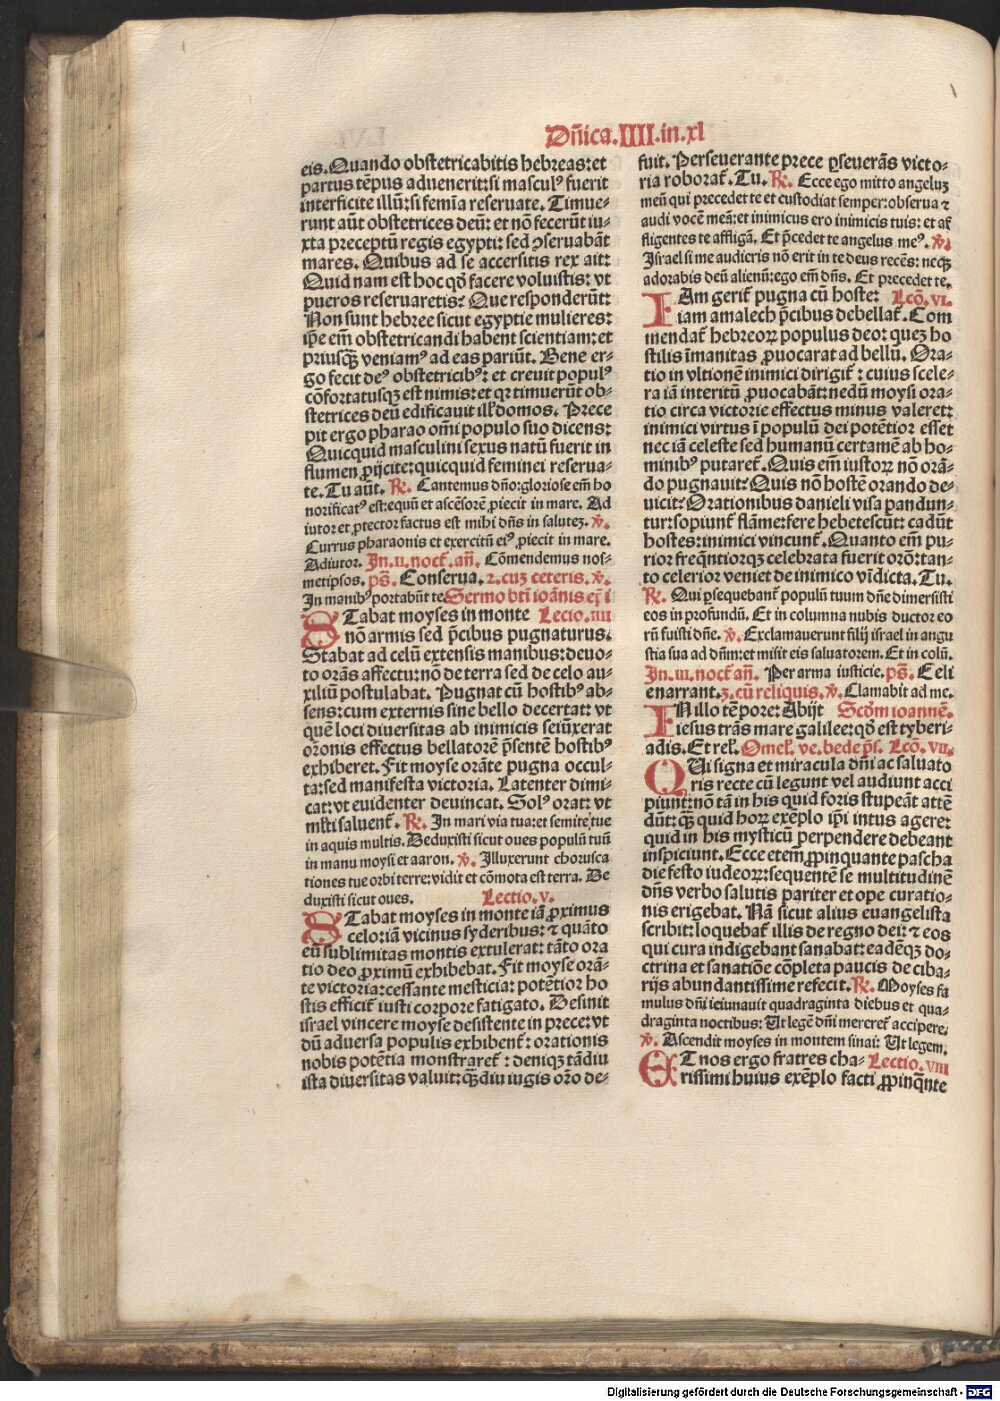 Dñica.IIII.in.xl
eis. Quando obstetricabitis hebreas: et
partus tēpus aduenerit: si masculꝰ fuerit
interficite illū: si femīa reseruate. Timue-
runt aūt obstetrices deū: et nō fecerūt iu-
xta preceptū regis egypti: sed ꝯseruabāt
mares. Quibus ad se accersitis rex ait:
Quid nam est hoc qď facere voluistis: vt
pueros reseruaretis? Que responderūt:
Non sunt hebree sicut egyptie mulieres:
ip̄e em̄ obstetricandi habent scientiam: et
priusqȝ veniamꝰ ad eas pariūt. Bene er-
go fecit deꝰ obstetricibꝰ: et creuit populꝰ
cōfortatusqȝ est nimis: et qr timuerūt ob-
stetrices deū edificauit ill' domos. Prece
pit ergo pharao om̄i populo suo dicens:
Quicquid masculini sexus natū fuerit in
flumen ꝓijcite: quicquid feminei reserua-
te. Tu aūt. ℞. Cantemus dño: gloriose em̄ ho
norificatꝰ est: equū et ascēsorē ꝓiecit in mare. Ad
iutor et ꝓtector factus est mihi dñs in salutez. ℣.
Currus pharaonis et exercitū eiꝰ ꝓiecit in mare.
Adiutor. In.II.noct̄.añ. Cōmendemus nos-
metipsos. ps̄. Conserua. 2. cuȝ ceteris. ℣.
In manibꝰ portabūt te Sermo btī ioānis ep̄i
STabat moyses in monte Lectio.IIII
nō armis sed p̄cibus pugnaturus.
Stabat ad celū extensis manibus: deuo-
to orās affectu: nō de terra sed de celo au-
xiliū postulabat. Pugnat cū hostibꝰ ab-
sens: cum externis sine bello decertat: vt
quē loci diuersitas ab inimicis seiūxerat
orōnis effectus bellatorē p̄sentē hostibꝰ
exhiberet. Fit moyse orāte pugna occul-
ta: sed manifesta victoria. Latenter dimi-
cat: vt euidenter deuincat. Solꝰ orat: vt
ml̄ti saluent̄. ℞. In mari via tua: et semite tue
in aquis multis. Deduxisti sicut oues populū tuū
in manu moysi et aaron. ℣. Illuxerunt chorusca
tiones tue orbi terre: vidit et cōmota est terra. De
duxisti sicut oues. Lectio.V.
STabat moyses in monte iā ꝓximus
celo: iā vicinus syderibus: ⁊ quāto
eū sublimitas montis extulerat: tāto ora
tio deo ꝓximū exhibebat. Fit moyse orā-
te victoria: cessante mesticia: potētior ho
stis efficit̄ iusti corpore fatigato. Desinit
israel vincere moyse desistente in prece: vt
dū aduersa populis exhibent̄: orationis
nobis potētia monstraret̄: deniqȝ tādiu
ista diuersitas valuit: qȝdiu iugis orō de-
fuit. Perseuerante prece ꝑseuerās victo-
ria roborat̄. Tu. ℞. Ecce ego mitto angeluȝ
meū qui precedet te et custodiat semper: obserua ⁊
audi vocē meā: et inimicus ero inimicis tuis: et af
fligentes te affligā. Et p̄cedet te angelus meꝰ. ℣.
Israel si me audieris nō erit in te deus recēs: neqȝ
adorabis deū alienū: ego em̄ dñs. Et precedet te.
IAm gerit̄ pugna cū hoste: Lcō.VI.
iam amalech p̄cibus debellat̄. Com
mendat̄ hebreoꝝ populus deo: queȝ ho
stilis īmanitas ꝓuocarat ad bellū. Ora-
tio in vltionē inimici dirigit̄: cuius scele-
ra iā interitū ꝓuocabāt: nedū moysi ora-
tio circa victorie effectus minus valeret:
inimici virtus ī populū dei potētior esset
nec iā celeste sed humanū certamē ab ho-
minibꝰ putaret̄. Quis em̄ iustoꝝ nō orā-
do pugnauit? Quis nō hostē orando de-
uicit? Orationibus danieli visa pandun-
tur: sopiunt̄ flāme: fere hebetescūt: cadūt
hostes: inimici vincunt̄. Quanto em̄ pu-
rior freqn̄tiorqȝ celebrata fuerit orō: tan-
to celerior veniet de inimico vīdicta. Tu.
℞. Qui ꝑsequebant̄ populū tuum dñe dimersisti
eos in profundū. Et in columna nubis ductor eo
rū fuisti dñe. ℣. Exclamauerunt filij israel in angu
stia sua ad dñm: et misit eis saluatorem. Et in colū.
In.III.noct̄.añ. Per arma iusticie. ps̄. Celi
enarrant. 3. cū reliquis. ℣. Clamabit ad me.
IN illo tēpore: Abijt Scd̄m ioannē.
iesus trās mare galilee: qď est tyberi-
adis. Et rel'. Omel'. ve. bede p̄s. Lcō.VII.
QUi signa et miracula dñi ac saluato
ris recte cū legunt vel audiunt acci
piunt: nō tā in his quid foris stupeāt attē
dūt: qȝ quid hoꝝ exēplo ip̄i intus agere:
quid in his mysticū perpendere debeant
inspiciunt. Ecce etem̄ ꝓpinquante pascha
die festo iudeoꝝ: sequentē se multitudinē
dñs verbo salutis pariter et ope curatio-
nis erigebat. Nā sicut alius euangelista
scribit: loquebat̄ illis de regno dei: ⁊ eos
qui cura indigebant sanabat: eadēqȝ do-
ctrina et sanatiōe cōpleta paucis de ciba-
rijs abundantissime refecit. ℞. Moyses fa
mulus dñi ieiunauit quadraginta diebus et qua-
draginta noctibus: Ut legē dñi mereret̄ accipere.
℣. Ascendit moyses in montem sinai: Ut legem.
ET nos ergo fratres cha- Lectio.VIII
rissimi huius exēplo facti ꝓpinqn̄te
Digitalisierung gefördert durch die Deutsche Forschungsgemeinschaft - DFG